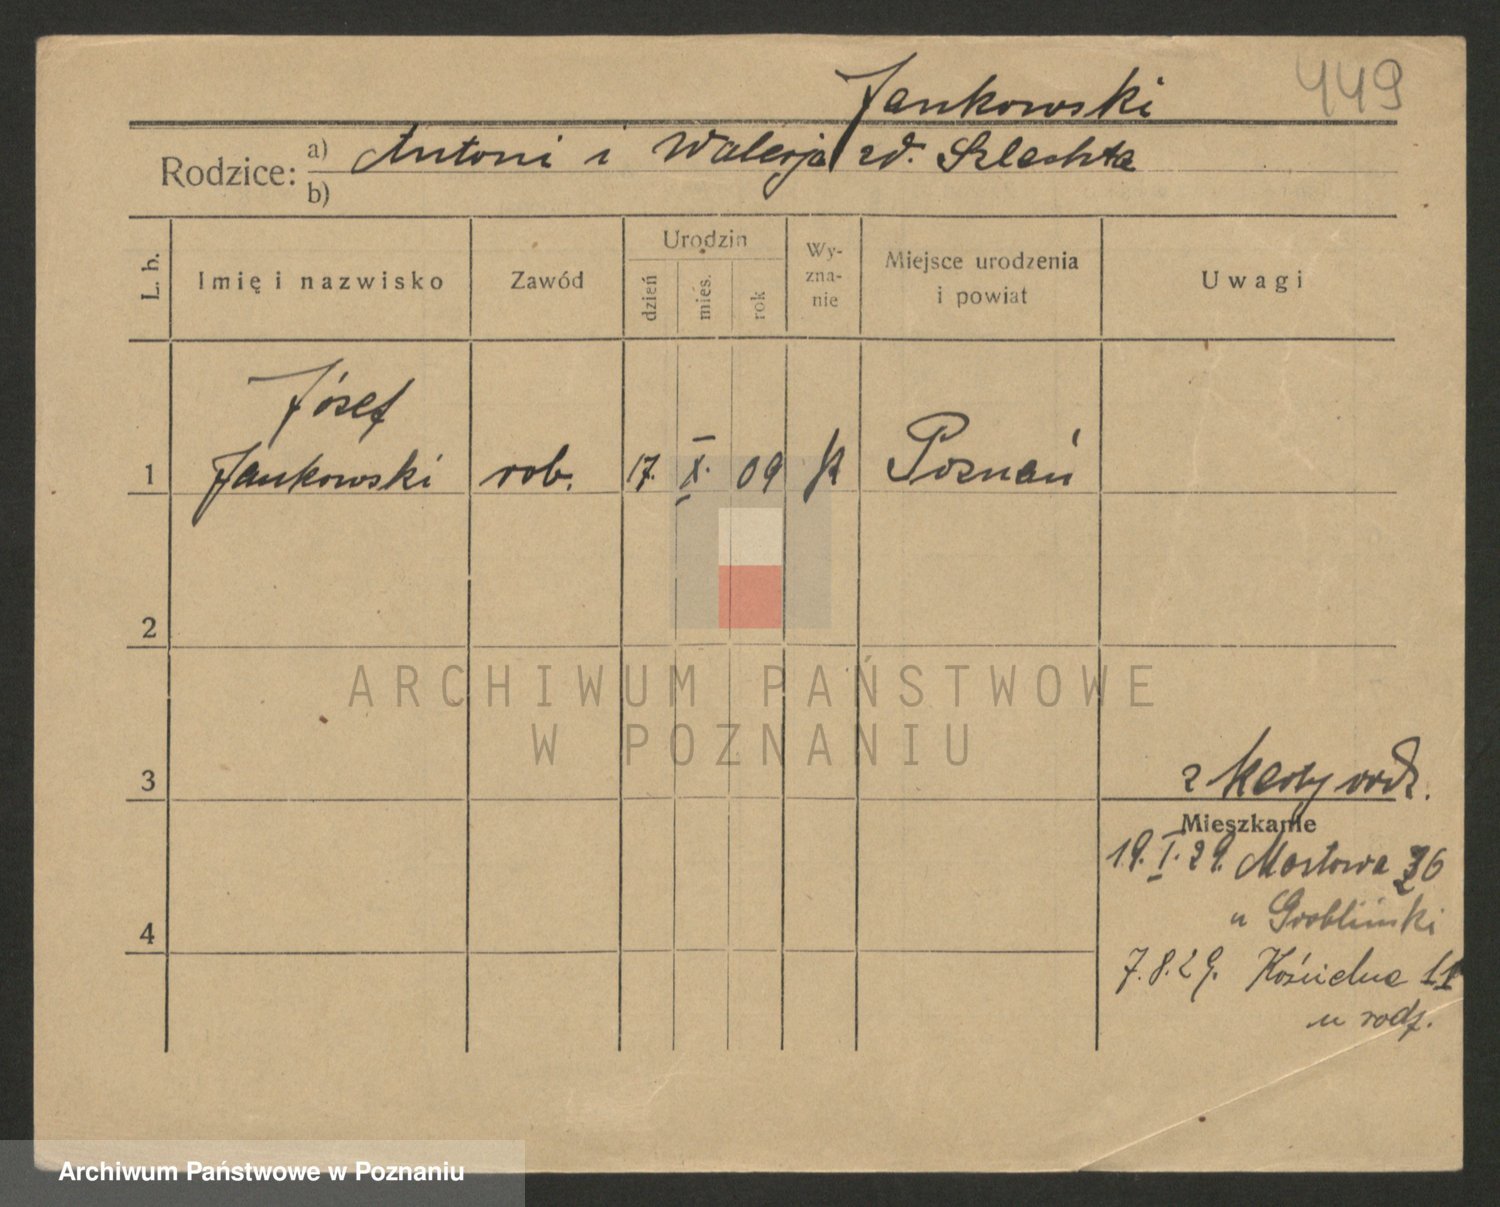 Jankowski
449
Rodzice: a) Antoni i Walerja zd. Szlachta
b)
L. b.
Imię i nazwisko
Zawód
Urodzin
dzień
mies.
rok
Wy-
zna-
nie
Miejsce urodzenia
i powiat
Uwagi
Józef
1 Jankowski rob. 17. X. 09 Poznań
2
ARCHIWUM PAŃSTWOWE
W POZNANIU
3
z karty rodz.
Mieszkanie
19. I. 29. Mostowa 36
u Grobliński
4
7.8.29. Kościelna 11
u rodz.
Archiwum Państwowe w Poznaniu